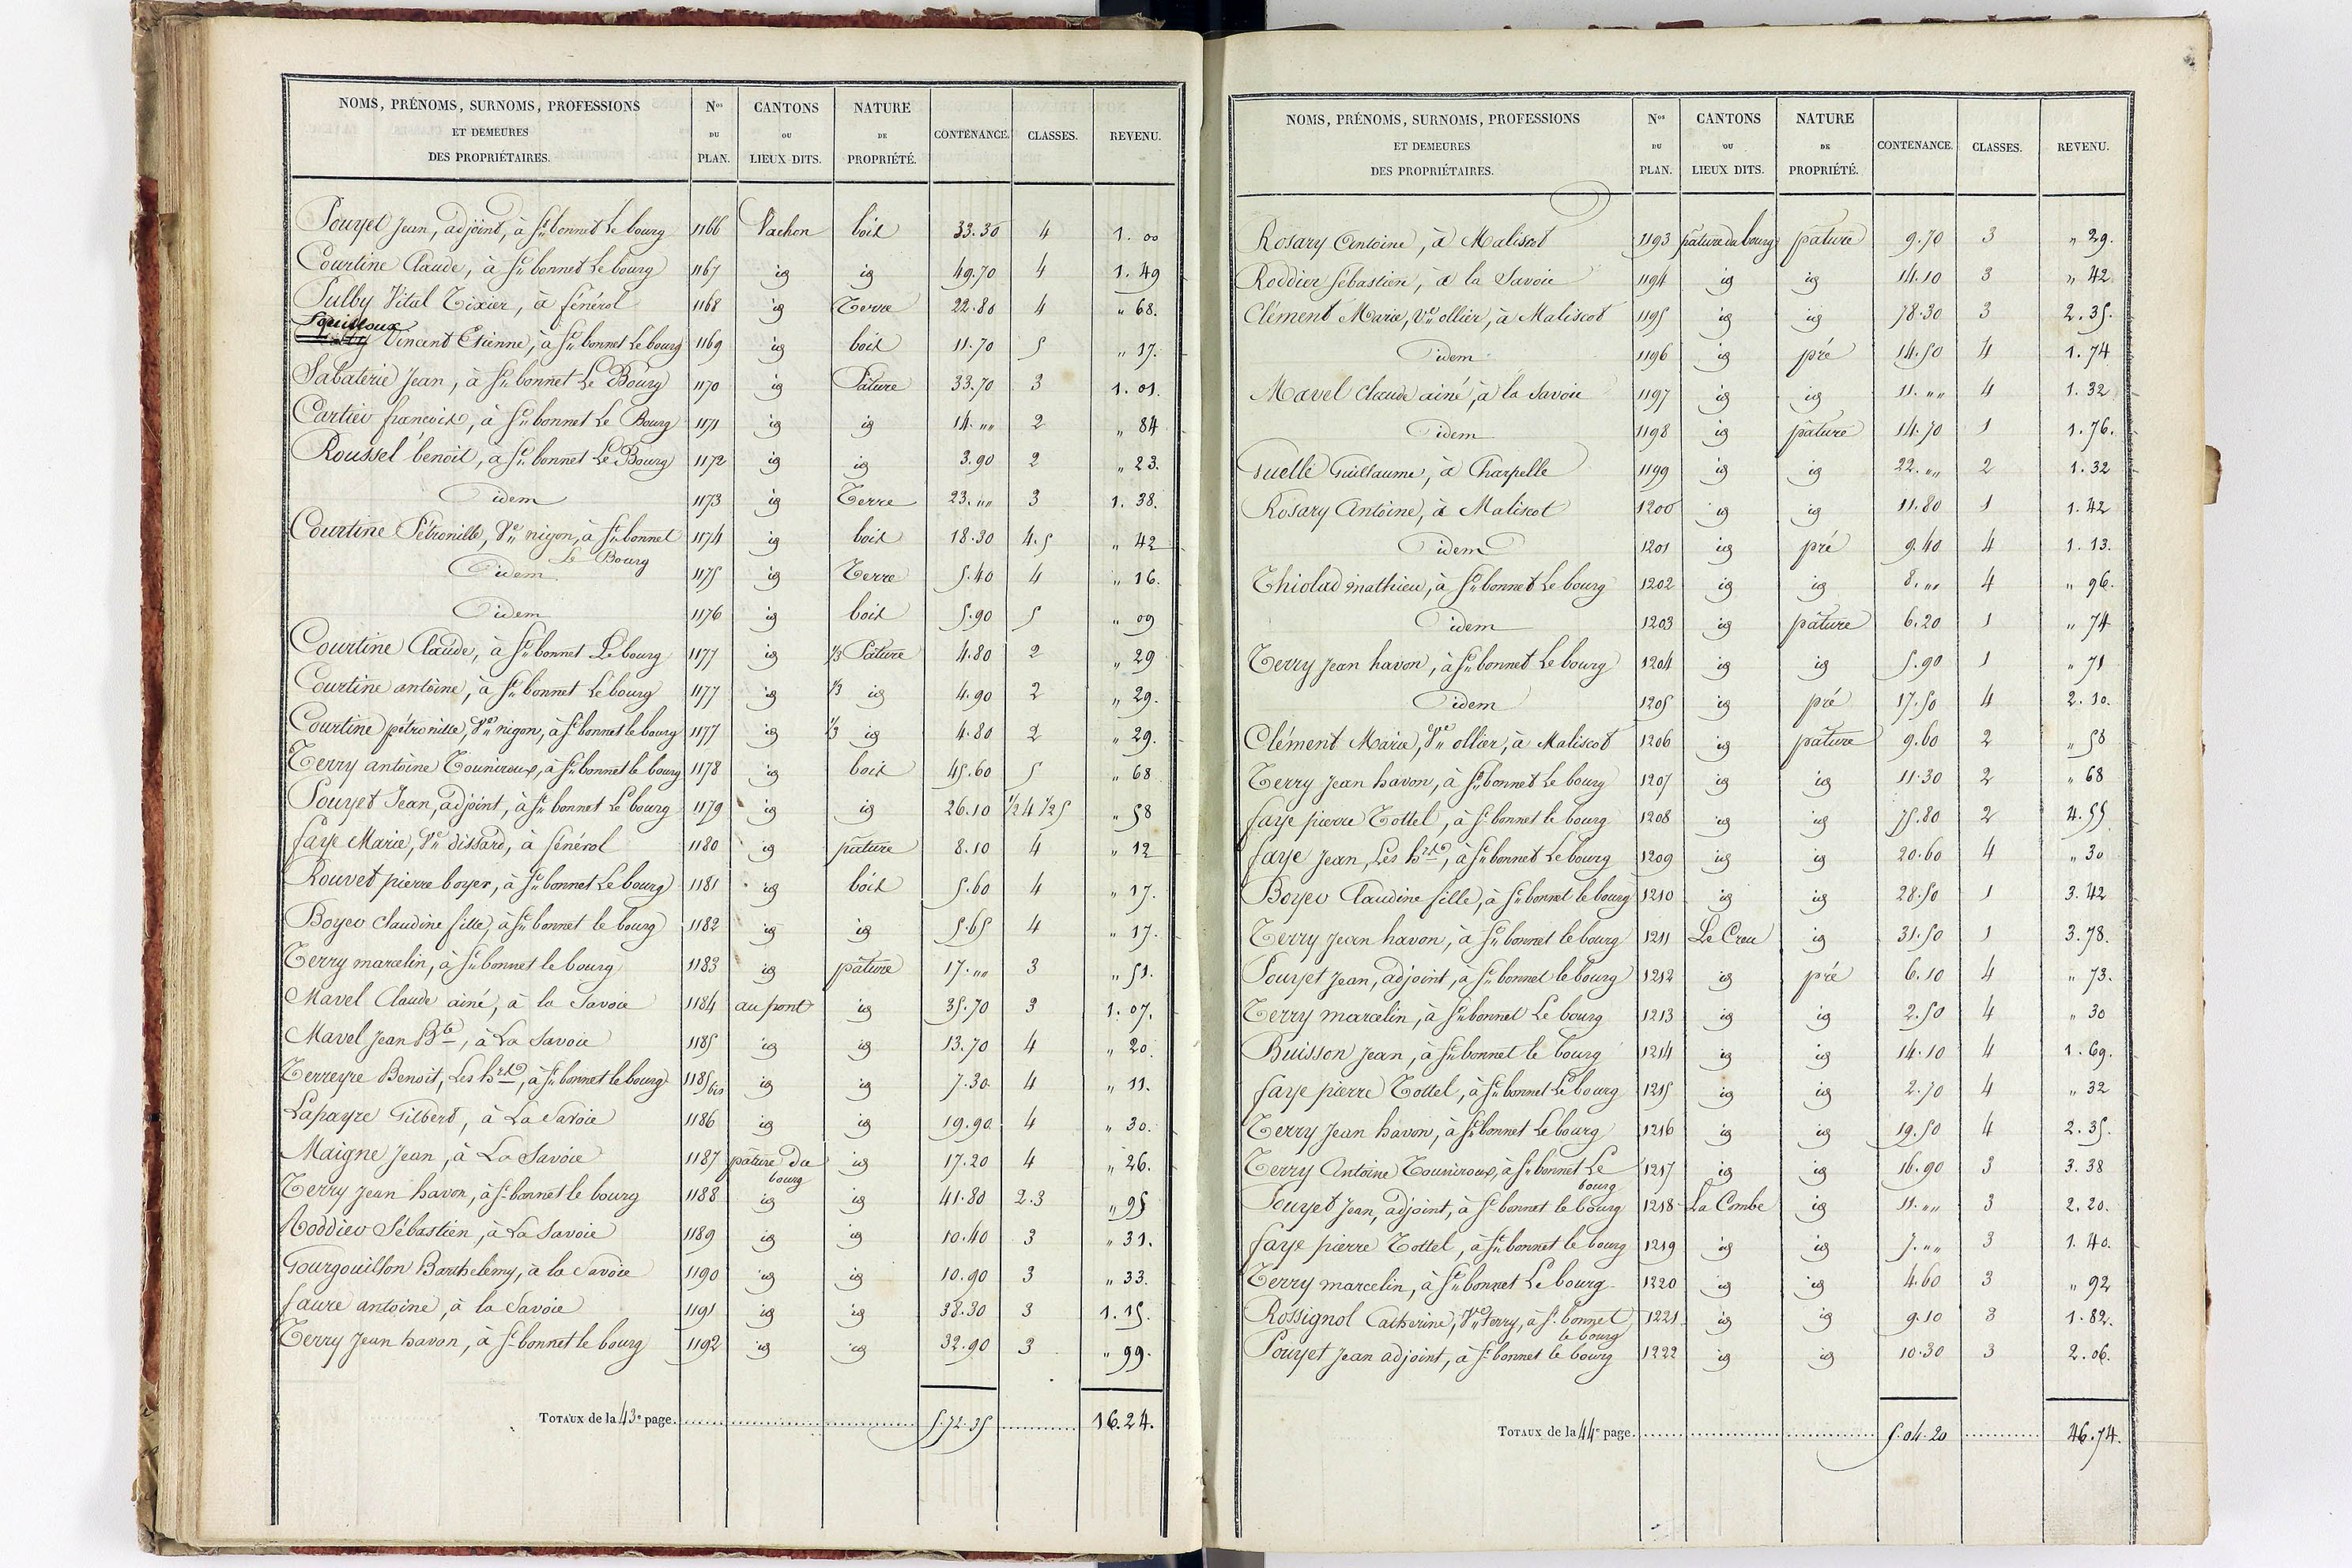 NOMS, PRÉNOMS, SURNOMS, PROFESSIONS ET DEMEURES DES PROPRIÉTAIRES. Nos DU PLAN. CANTONS OU LIEUX DITS. NATURE DE PROPRIÉTÉ. CONTENANCE. CLASSES. REVENU.
Pouyet Jean, adjoint, à St bonnet Le bourg 1166 Vachon bois 33.30 4 1. 00
Courtine Claude, à St bonnet Le bourg 1167 id id 49.70 4 1. 49
Pulby Vital Tixier, à fénérol 1168 id Terre 22.80 4 " 68.
Vincent Etienne, à St bonnet Le bourg 1169 id bois 11.70 5 " 17.
Sabaterie Jean, à St bonnet Le Bourg 1170 id Pature 33.70 3 1. 01.
Cartier françois, à St bonnet Le Bourg 1171 id id 14. "" 2 " 84
Roussel benoit, à St bonnet Le Bourg 1172 id id 3.90 2 " 23.
idem 1173 id Terre 23. "" 3 1. 38.
Courtine Pétronille, Ve nigon, à St bonnet 1174 id bois 18.30 4.5 " 42
Le Bourg
idem 1175 id Terre 5.40 4 " 16.
idem 1176 id bois 5.90 5 " 09
Courtine Claude, à St bonnet Le bourg 1177 id 1/3 Pature 4.80 2 " 29
Courtine antoine, à St bonnet Le bourg 1177 id 1/3 id 4.90 2 " 29.
Courtine pétronille, Ve nigon, à St bonnet le bourg 1177 id 1/3 id 4.80 2 " 29.
Terry antoine Touniroux, à St bonnet le bourg 1178 id bois 45.60 5 " 68
Pouyet Jean, adjoint, à St bonnet Le bourg 1179 id id 26.10 1/2 4 1/2 5 " 58
faye Marie, Ve dissard, à fénérol 1180 id pature 8.10 4 " 12
Rouvet pierre boyer, à St bonnet Le bourg 1181 id bois 5.60 4 " 17.
Boyer claudine fille, à St bonnet le bourg 1182 id id 5.65 4 " 17.
Terry marcelin, à St bonnet le bourg 1183 id pature 17. "" 3 " 51.
Mavel Claude ainé, à la Savoie 1184 au pont id 35.70 3 1. 07.
Mavel Jean Bte, à La Savoie 1185 id id 13.70 4 " 20.
Terreyre Benoit, Les hrs, à St bonnet le bourg 1185 bis id id 7.30 4 " 11.
Lapayre Gilbert, à La Savoie 1186 id id 19.90 4 " 30.
Maigne Jean, à La Savoie 1187 pature du bourg id 17.20 4 " 26.
Terry Jean havon, à St bonnet le bourg 1188 id id 41.80 2.3 " 95
Roddier Sébastien, à La Savoie 1189 id id 10.40 3 " 31.
Gourgouillon Barthelemy, à la Savoie 1190 id id 10.90 3 " 33.
faure antoine, à la Savoie 1191 id id 38.30 3 1. 15.
Terry Jean havon, à St bonnet le bourg 1192 id id 32.90 3 " 99.
TOTAUX de la 43e page. 5.72.35 16.24.
NOMS, PRÉNOMS, SURNOMS, PROFESSIONS ET DEMEURES DES PROPRIÉTAIRES. Nos DU PLAN. CANTONS OU LIEUX DITS. NATURE DE PROPRIÉTÉ. CONTENANCE. CLASSES. REVENU.
Rosary Antoine, à Maliscot 1193 pature du bourg pature 9.70 3 " 29.
Roddier Sébastien, à la Savoie 1194 id id 14.10 3 " 42
Clément Marie, Ve ollier, à Maliscot 1195 id id 78.30 3 2.35.
idem 1196 id pré 14.50 4 1. 74
Mavel Claude ainé, à la Savoie 1197 id id 11. "" 4 1. 32
idem 1198 id pature 14.70 1 1. 76.
Guillaume, à Charpelle 1199 id id 22. "" 2 1. 32
Rosary Antoine, à Maliscot 1200 id id 11.80 1 1. 42
idem 1201 id pré 9.40 4 1. 13.
Thiolas mathieu, à St bonnet Le bourg 1202 id id 8. "" 4 " 96.
idem 1203 id pature 6.20 1 " 74
Terry Jean havon, à St bonnet Le bourg 1204 id id 5.90 1 " 71
idem 1205 id pré 17.50 4 2. 10.
Clément Marie, Ve ollier, à Maliscot 1206 id pature 9.60 2 " 58
Terry Jean havon, à St bonnet Le bourg 1207 id id 11.30 2 " 68
faye pierre Tottel, à St bonnet le bourg 1208 id id 75.80 2 4. 55
faye Jean, Les hrs, à St bonnet Le bourg 1209 id id 20.60 4 " 30
Boyer Claudine fille, à St bonnet le bourg 1210 id id 28.50 1 3. 42
Terry Jean havon, à St bonnet le bourg 1211 Le Crau id 31.50 1 3.78.
Pouyet Jean, adjoint, à St bonnet le bourg 1212 id pré 6.10 4 " 73.
Terry marcelin, à St bonnet Le bourg 1213 id id 2.50 4 " 30
Buisson Jean, à St bonnet le bourg 1214 id id 14.10 4 1. 69.
faye pierre Tottel, à St bonnet Le bourg 1215 id id 2.70 4 " 32
Terry Jean havon, à St bonnet Le bourg 1216 id id 19.50 4 2.35.
Terry Antoine Touniroux, à St bonnet Le bourg 1217 id id 16.90 3 3. 38
Pouyet Jean, adjoint, à St bonnet le bourg 1218 La Combe id 11. "" 3 2. 20.
faye pierre Tottel, à St bonnet le bourg 1219 id id 7. "" 3 1. 40.
Terry marcelin, à St bonnet Le bourg 1220 id id 4.60 3 " 92
Rossignol Catherine, Ve Terry, à St bonnet le bourg 1221 id id 9.10 3 1. 82.
Pouyet Jean adjoint, à St bonnet le bourg 1222 id id 10.30 3 2. 06.
TOTAUX de la 44e page. 5.04.20 46.74.